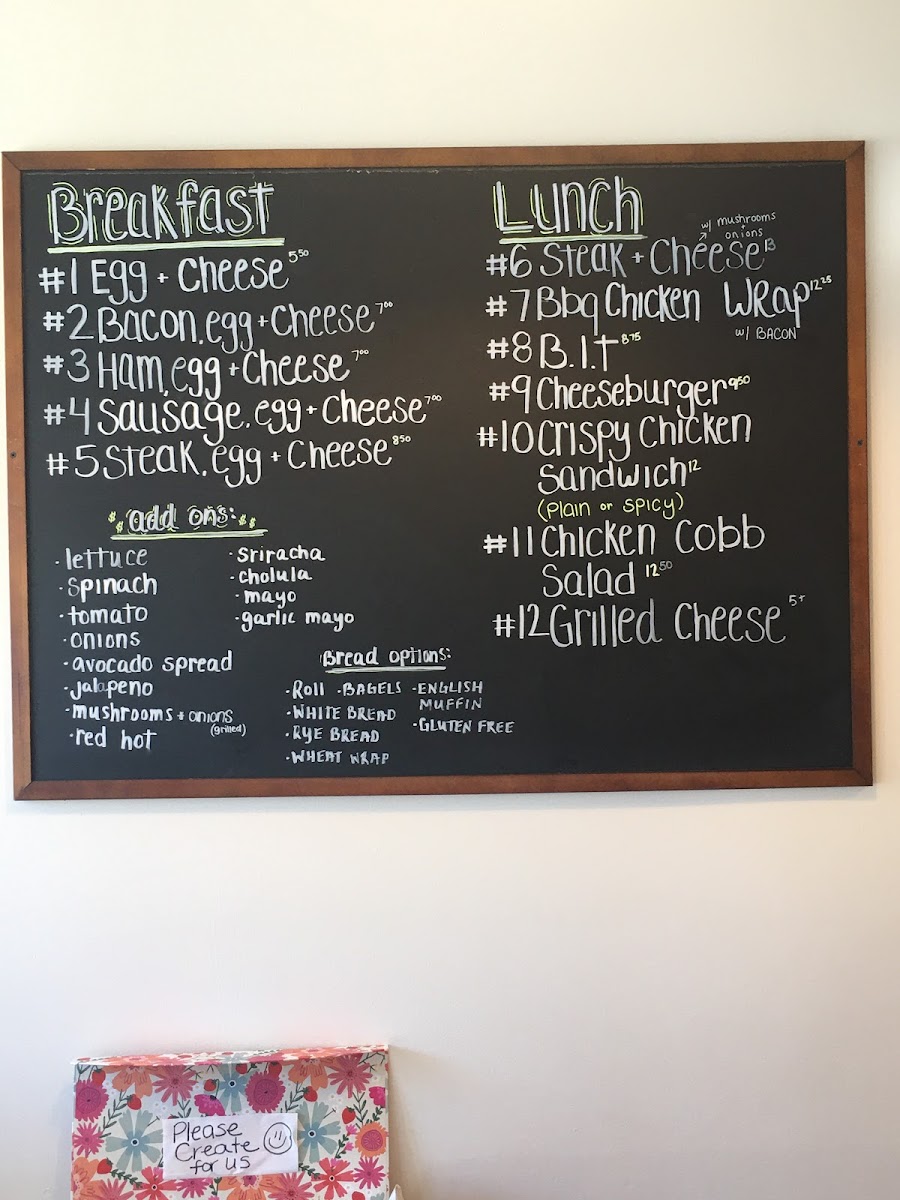 Breakfast
#1 Egg + Cheese 5⁵⁰
#2 Bacon, egg + Cheese 7⁰⁰
#3 Ham, egg + Cheese 7⁰⁰
#4 Sausage, egg + Cheese 7⁰⁰
#5 Steak, egg + Cheese 8⁵⁰
$$ add ons: $$
· lettuce
· Spinach
· tomato
· onions
· avocado spread
· jalapeno
· mushrooms + onions
(grilled)
· red hot
· Sriracha
· cholula
· mayo
· garlic mayo
Bread options:
· Roll · BAGELS · ENGLISH
MUFFIN
· WHITE BREAD
· GLUTEN FREE
· RYE BREAD
· WHEAT WRAP
Lunch
w/ mushrooms
+ onions
#6 Steak + Cheese 13
#7 Bbq Chicken Wrap 12²⁵
w/ BACON
#8 B.l.t 8⁷⁵
#9 Cheeseburger 9⁵⁰
#10 Crispy Chicken
Sandwich 12
(Plain or SPICY)
#11 Chicken Cobb
Salad 12⁵⁰
#12 Grilled Cheese 5+
Please
Create
for us